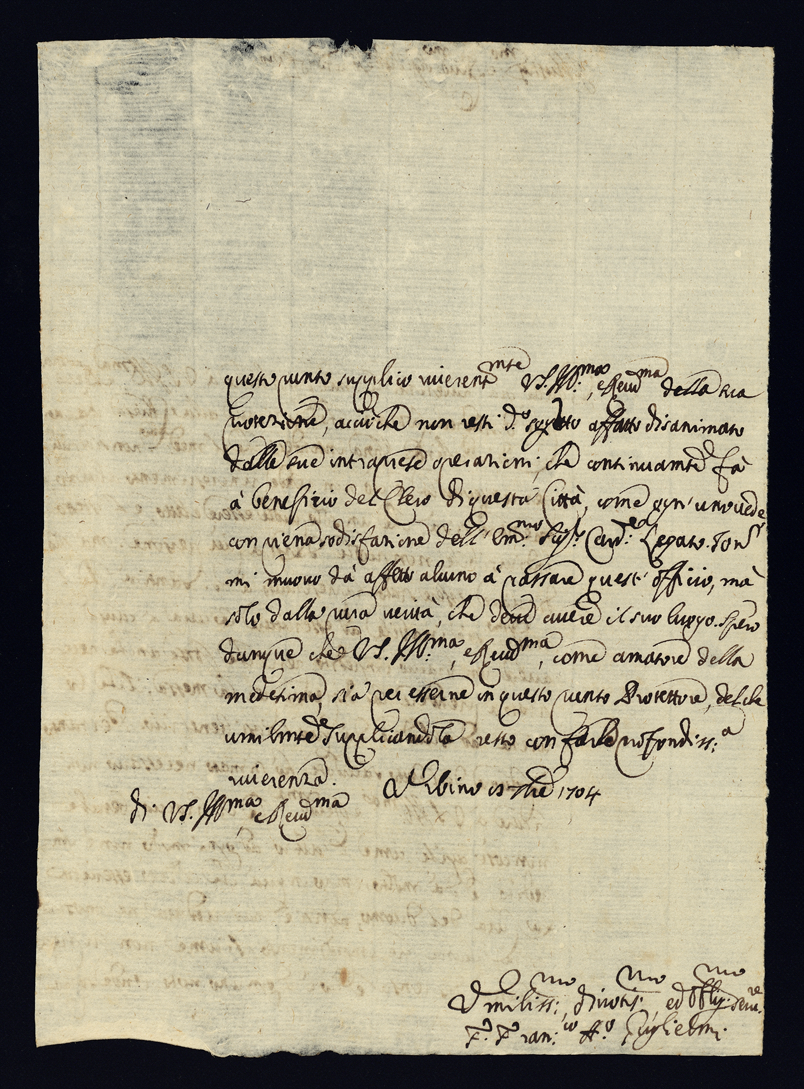 questo punto supplico riverentmnte VS. Illma, e Reudma della sua
protezione, acciò che non resti d.o sogetto affatto disanimato
dalle sue intraprese operazioni, che continuamte fà
à beneficio del Clero di questa Città, come ogn'uno uede
con piena sodisfazione dell'Em.mo Sigr. Card.e Legato. Non
mi muouo dà affetto alcuno à passare quest'officio, mà
solo dalla pura verità, che deue auere il suo luogo. Spero
dunque che VS. Illma, e Reudma, come amatore della
medesima, sia per esserne in questo punto Protettore, del che
umilmte supplicandola resto con farle profondiss.a
riuerenza. Urbino 7bre 1704
di VS. Illma e Reudma
Umiliss:mo, Diuotis:mo, ed Obblig:mo Seru.re
F. Fran.co Guglielmi.